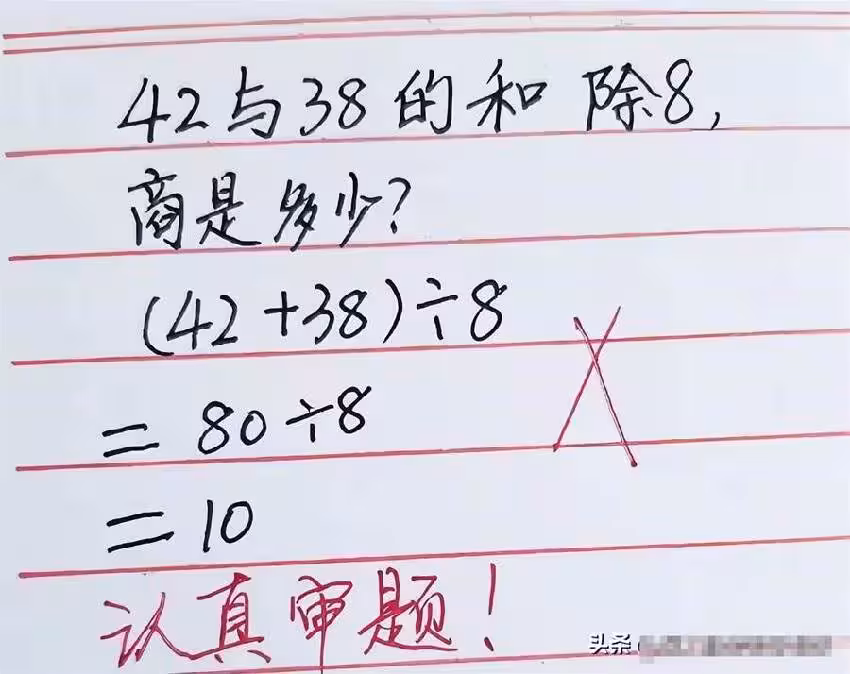 42与38的和 除8,
商是多少?
(42+38)÷8
=80÷8
=10
认真审题!
头条